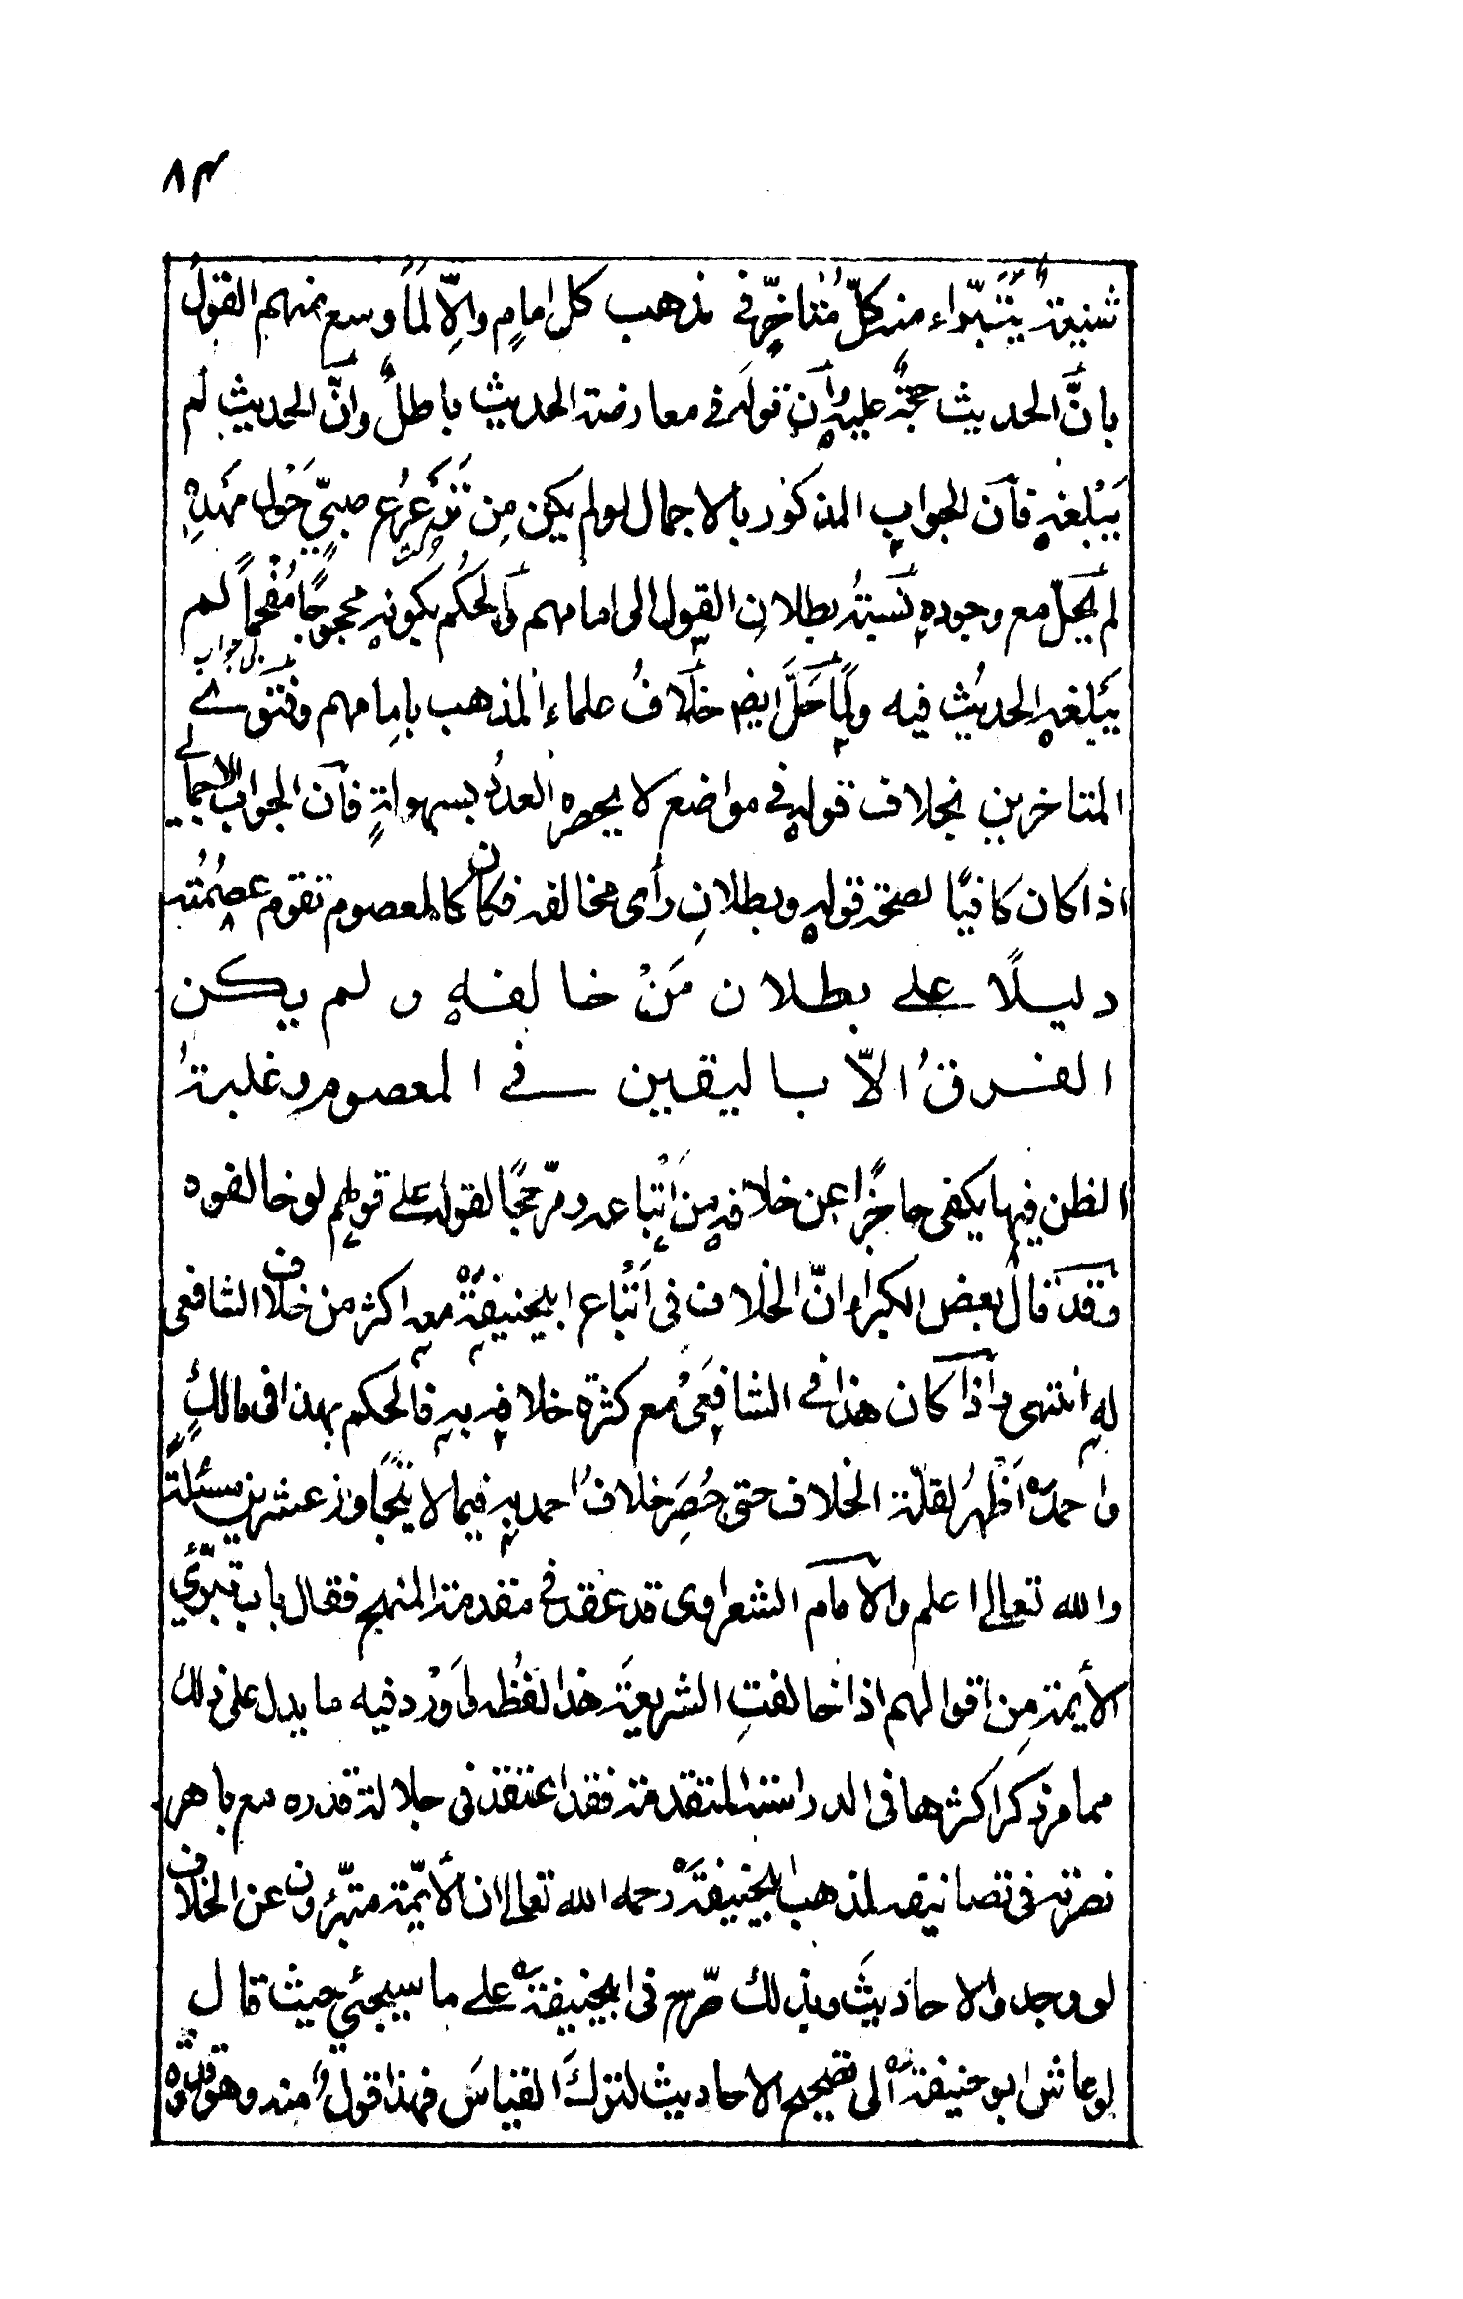 ٨٣
شنيعةٌ يتبرّاء منه كلّ متاخّرٍ في مذهب كل امامٍ والّا لما وسع منهم القولُ
بانّ الحديث حجةٌ عليه وان قوله في معارضة الحديث باطلٌ وانّ الحديث لم
يَبْلغه فان الجواب المذكور بالاجمال لو لم يكن مِن تَرَعرُع صبيّ حَول مهدِهِ
لم يحلّ مع وجودهٖ نسبةُ بطلانِ القول الى امامهم والحكم بكونهٖ محجوجًا مُفْحماً لم
يَبلغه الحديث فيه ولما حَلّ ايضا خلافُ علماء المذهب بامامهم وفتوے
المتاخرين بخلاف قوله في مواضع لا يحصره العدُّ بسهولةٍ فان الجواب الاجمالے
اذا كان كافيًا لصحة قوله وبطلانِ رأى مخالفه فكان كالمعصوم تقوم عصمُتُه
دليلًا علے بطلان مَنْ خالفهٖ ولم يكن
الفرقُ الّا باليقين فے المعصوم وغلبةُ
الظن فيها يكفى حاجزًا عن خلافهٖ من اتباعه ومرّجحًا لقوله علے قولهم لو خالفوه
وقد قال بعض الكبراء انّ الخلاف فى اتباع ابيحنيفةؒ معه اكثر من خلاف الشافعى
لهٖ انتهى واذا كان هذا فے الشافعىؒ مع كثرة خلافهٖ بهٖ فالحكم بهذا فى مالكٍؒ
واحمدؒ اَظْهرُ لقلّة الخلاف حتى حُصِرَ خلافُ احمد بهٖ فيما لا يتجاوز عشرين مسئلةً
والله تعالےٰ اعلم والامام الشعراوى قد عقد في مقدمة المنهج فقال باب تبرّئ
الأيمة من اقوالهم اذا خالفتِ الشريعةَ هذا لفظُه واَوْرد فيه ما يدل على ذلك
مما مر ذكر اكثرها فى الدراسة المتقدمة فقد اعتقد فى جلالة قدره مع باهر
نصرته فى تصانيفه لمذهب ابيحنيفةؒ رحمه الله تعالےٰ ان الأيمّة متبّرؤن عن الخلاف
لو وجدوا الاحاديثَ وبذلك صّرح فى ابيحنيفةؒ علے ما سيجئي حيث قال
لو عاش ابو حنيفةؒ الى تصحيح الاحاديث لترك القياسَ فهذا قولٌ منه وهو قدوة